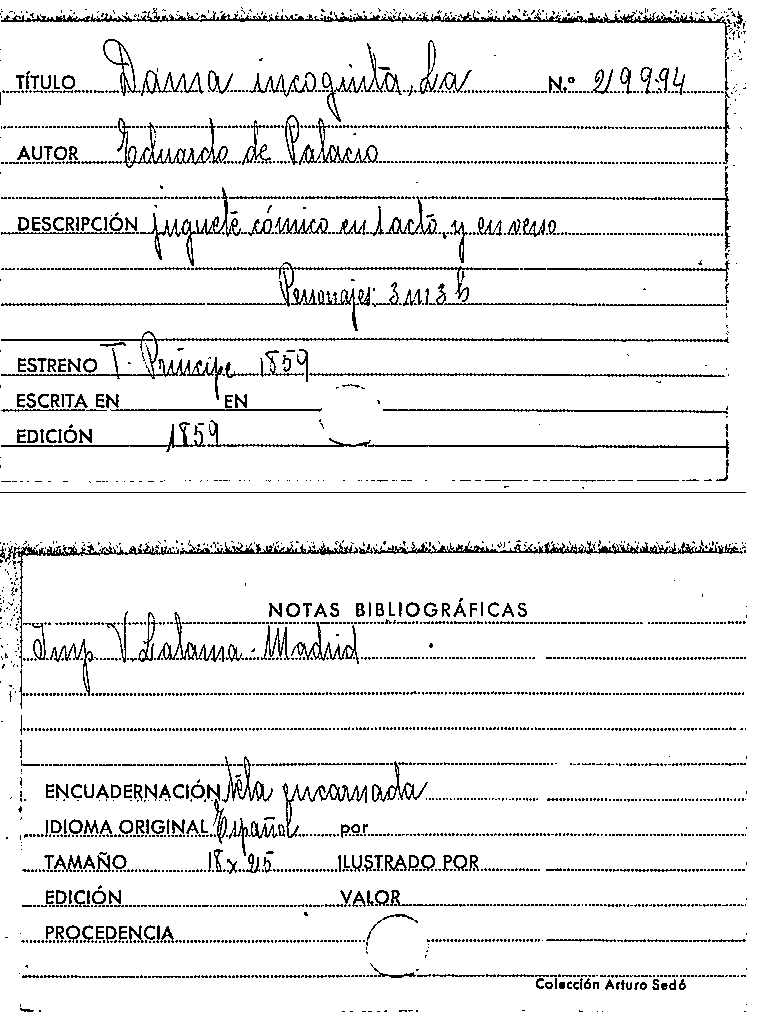 TÍTULO Dama incognita, La N.º 21994
AUTOR Eduardo de Palacio
DESCRIPCIÓN juguete cómico en 1 acto, y en verso
Personajes: 3 m 3 h
ESTRENO T. Príncipe 1859
ESCRITA EN EN
EDICIÓN 1859
NOTAS BIBLIOGRÁFICAS
Imp V. Lalama - Madrid
ENCUADERNACIÓN Tela encarnada
IDIOMA ORIGINAL Español por
TAMAÑO 18 x 25 ILUSTRADO POR
EDICIÓN VALOR
PROCEDENCIA
Colección Arturo Sedó